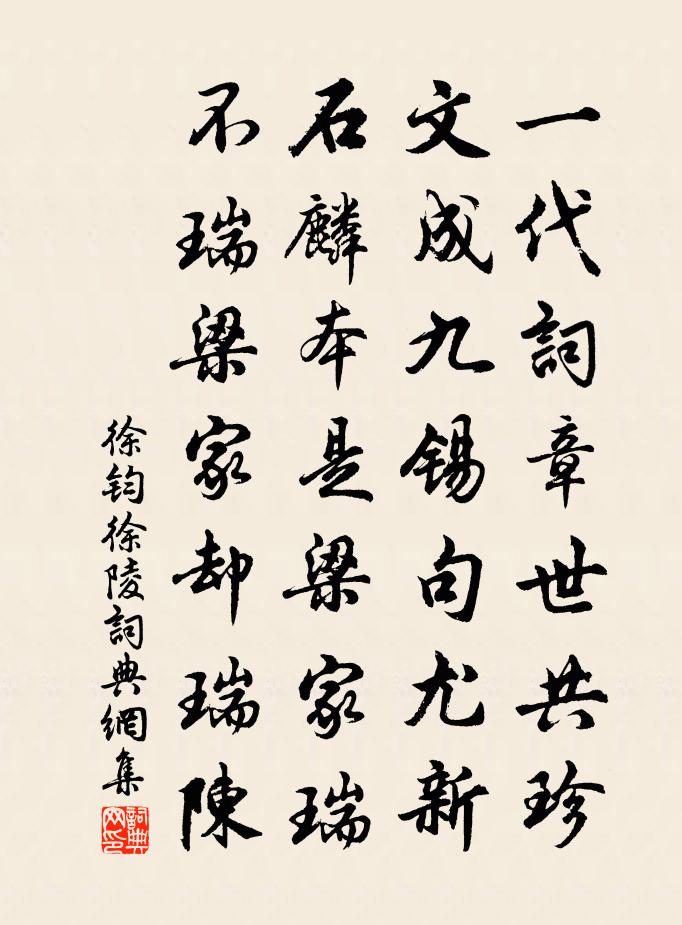 一代詞章世共珍
文成九錫句尤新
石麟本是梁家瑞
不瑞梁家却瑞陳
徐鈞徐陵詞典網集
詞典網印